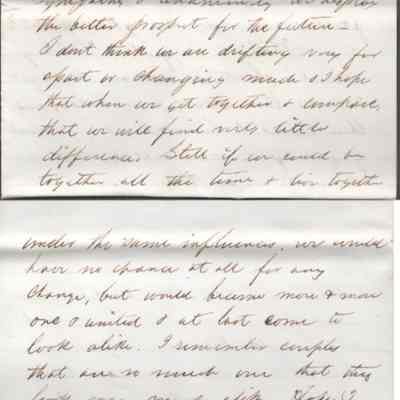 the better prospect for the future -
I dont think we are drifting very far
apart or changing much & I hope
that when we get together & compare,
that we will find very little
difference. Still if we could be
together all the time & live together
under the same influences, we would
have no chance at all for any
change, but would become more & more
one & united & at last come to
look alike. I remember couples
that are so much one that they
look